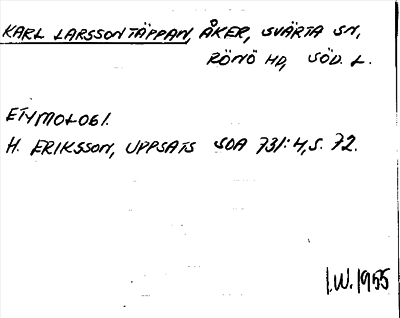 KARL LARSSONTÄPPAN, ÅKER, SVÄRTA SN,
RÖNÖ HD, SÖD. L.
ETYMOLOGI.
H. ERIKSSON, UPPSATS SOA 731:4, S. 72.
I.W. 1955